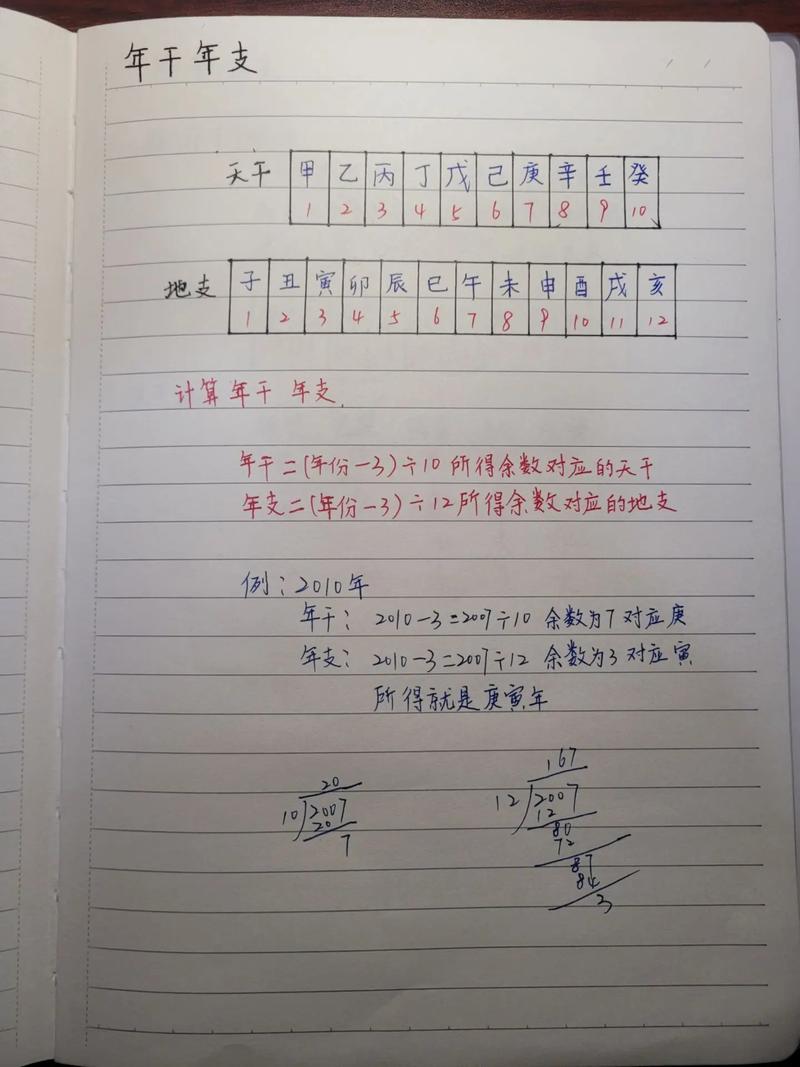 年干年支
天干 甲 乙 丙 丁 戊 己 庚 辛 壬 癸
1 2 3 4 5 6 7 8 9 10
地支 子 丑 寅 卯 辰 巳 午 未 申 酉 戌 亥
1 2 3 4 5 6 7 8 9 10 11 12
计算年干 年支.
年干=(年份-3)÷10 所得余数对应的天干
年支=(年份-3)÷12所得余数对应的地支
例:2010年
年干: 2010-3=2007÷10 余数为7 对应庚
年支: 2010-3=2007÷12 余数为3 对应寅
所得就是庚寅年
20
10 2007
20
7
167
12 2007
12
80
72
87
84
3